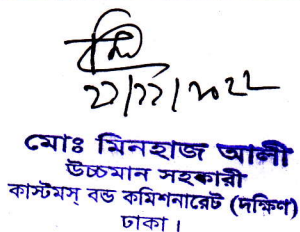 ২২/১১/২০২২
মোঃ মিনহাজ আলী
উচ্চমান সহকারী
কাস্টমস্ বন্ড কমিশনারেট (দক্ষিণ)
ঢাকা।